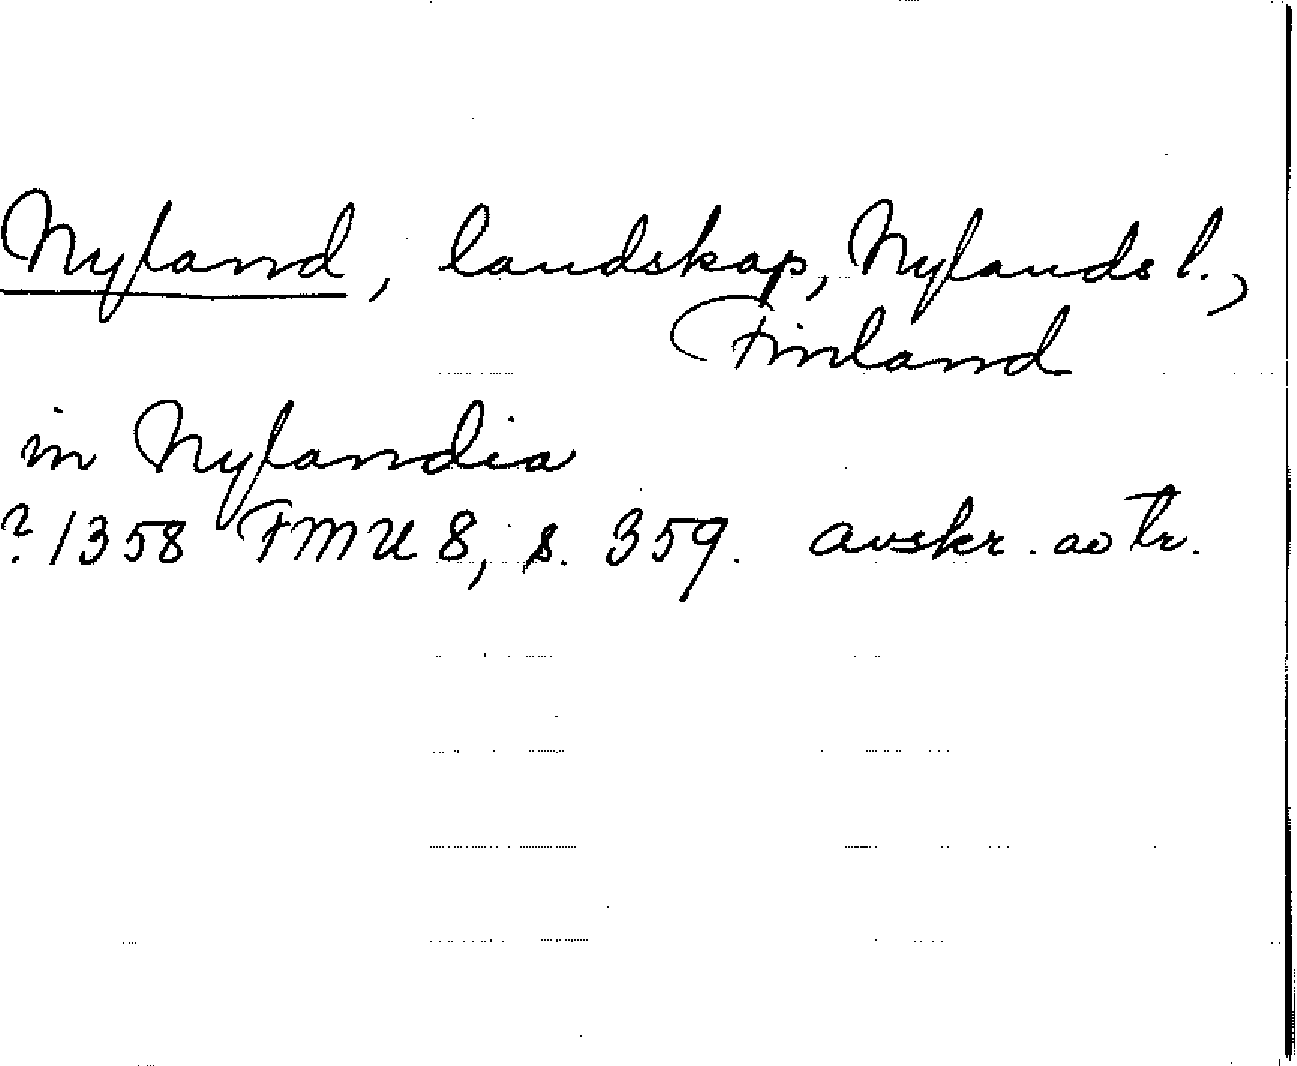 Nyland, landskap, Nylands l.,
Finland
in Nylandia
? 1358 FMU 8, s. 359. avskr. ao tr.